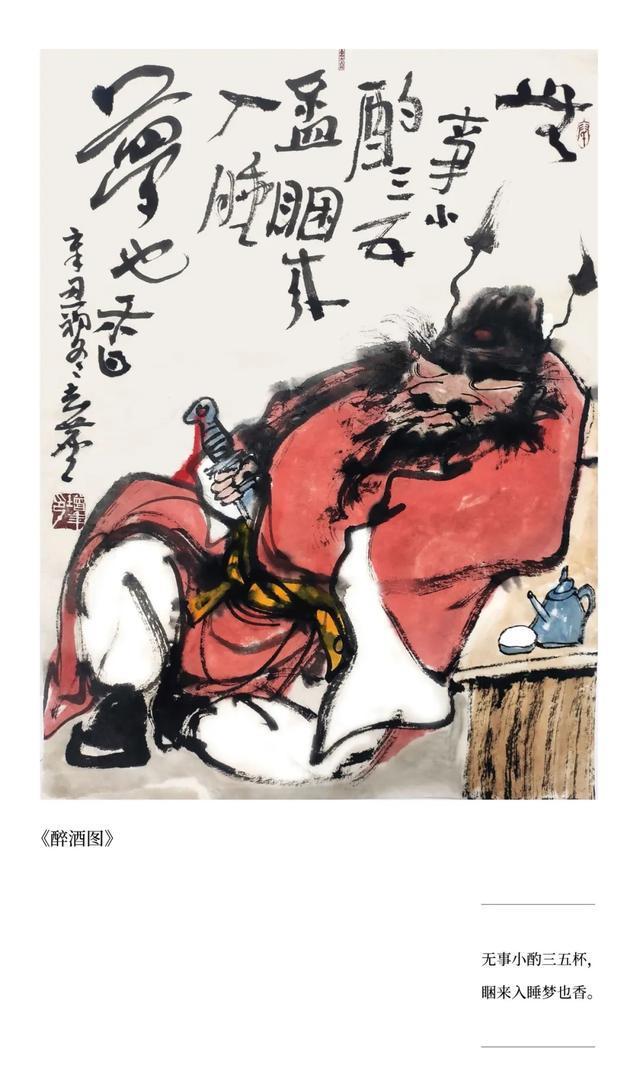 無
事小
酌三五
盃睏来
入睡
夢也香
辛丑初冬
《醉酒图》
无事小酌三五杯，
睏来入睡梦也香。